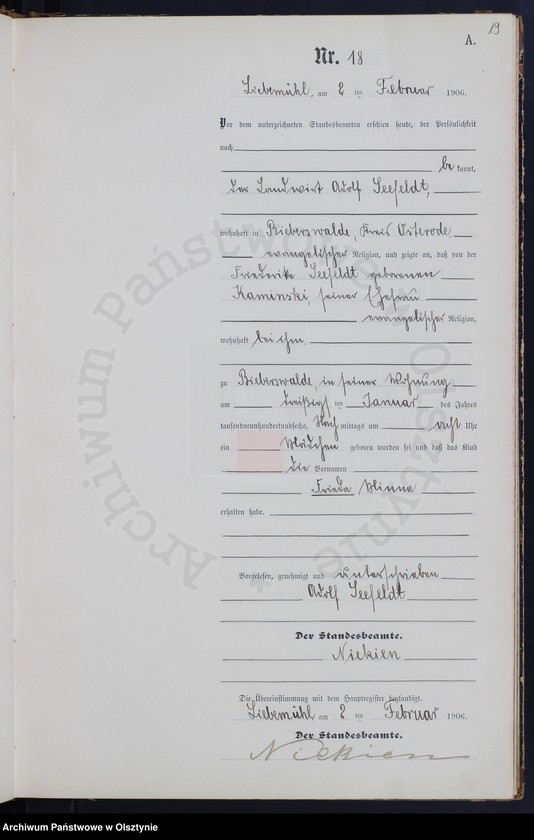 19
A.
Nr. 18
Liebemühl, am 2 ten Februar 1906.
Vor dem unterzeichneten Standesbeamten erschien heute, der Persönlichkeit
nach
be kannt,
der Landwirt Adolf Seefeldt,
wohnhaft in Bieberswalde, Kreis Osterode
evangelischer Religion, und zeigte an, daß von der
Friederike Seefeldt geborenen
Kaminski, seiner Ehefrau
evangelischer Religion,
wohnhaft bei ihm
zu Bieberswalde, in seiner Wohnung
am dreißigsten Januar des Jahres
tausendneunhundertundsechs, Nachmittags um acht Uhr
ein Mädchen geboren worden sei und daß das Kind
die Vornamen
Frieda Minna
erhalten habe.
Vorgelesen, genehmigt und unterschrieben
Adolf Seefeldt
Der Standesbeamte.
Niekien
Die Übereinstimmung mit dem Hauptregister beglaubigt.
Liebemühl, am 2 ten Februar 1906.
Der Standesbeamte.
Niekien
Archiwum Państwowe w Olsztynie
Archiwum Państwowe w Olsztynie